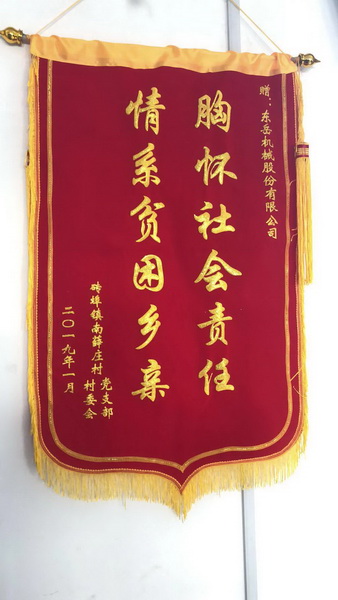 赠：东岳机械股份有限公司
胸怀社会责任
情系贫困乡亲
砖埠镇南薛庄村党支部
村委会
二〇一九年一月